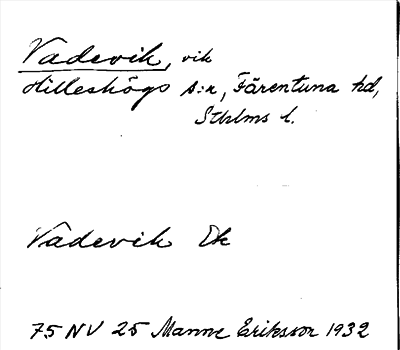 Vadevik, vik
Hilleshögs s:n, Färentuna hd,
Sthlms l.
Vadevik Ek
75 NV 25 Manne Eriksson 1932